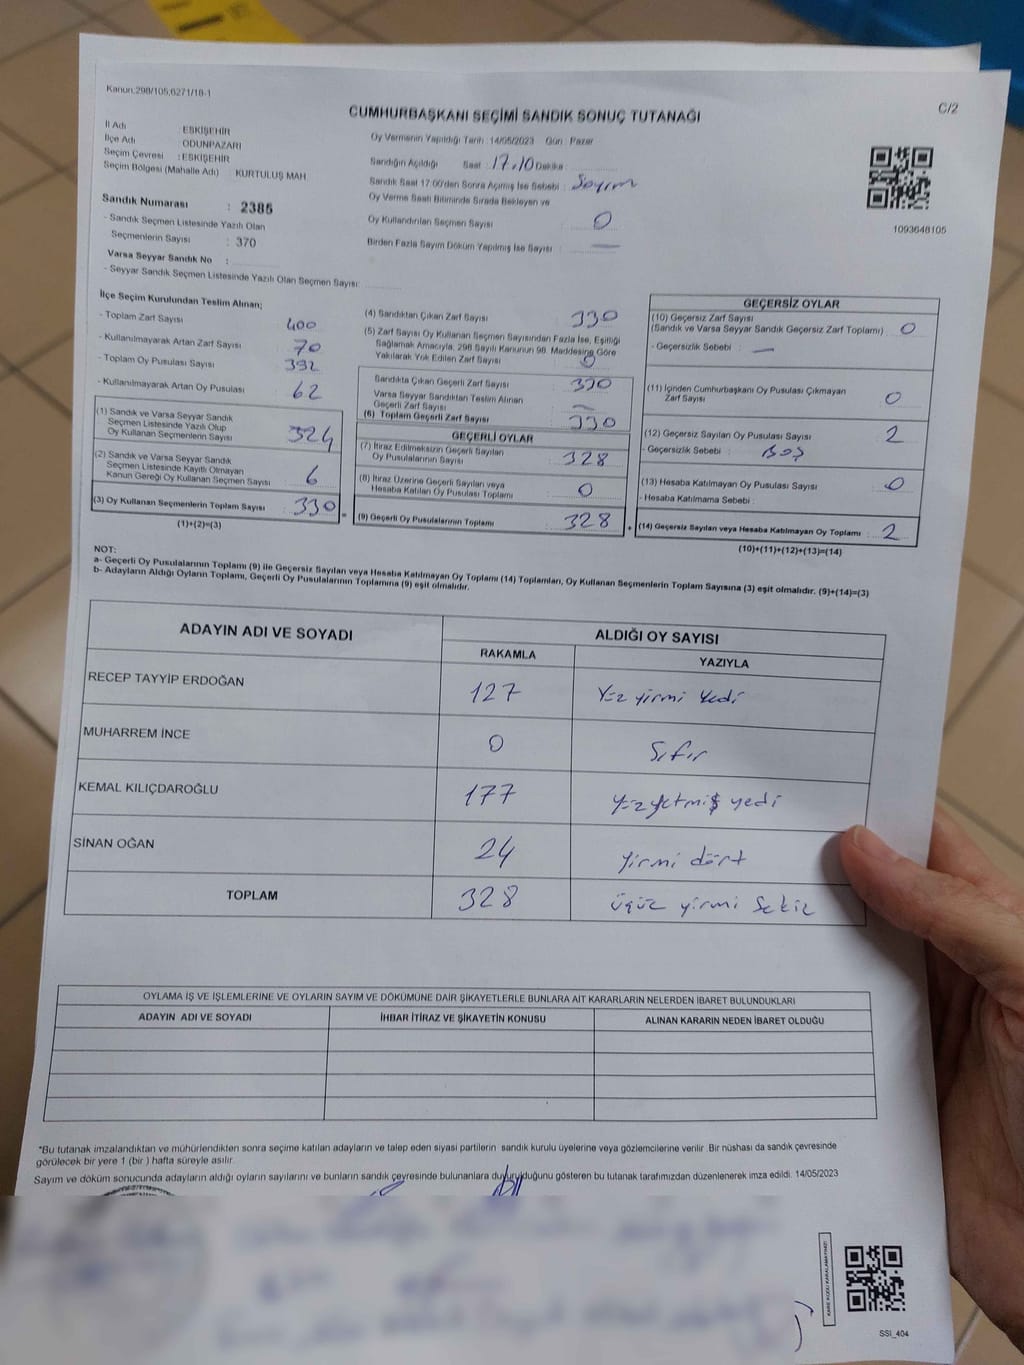 Kanun:298/105,6271/18-1
C/2
CUMHURBAŞKANI SEÇİMİ SANDIK SONUÇ TUTANAĞI
İl Adı ESKİŞEHİR
İlçe Adı ODUNPAZARI
Seçim Çevresi : ESKİŞEHİR
Seçim Bölgesi (Mahalle Adı) : KURTULUŞ MAH.
Sandık Numarası : 2385
- Sandık Seçmen Listesinde Yazılı Olan
Seçmenlerin Sayısı : 370
Varsa Seyyar Sandık No :
- Seyyar Sandık Seçmen Listesinde Yazılı Olan Seçmen Sayısı:
Oy Vermenin Yapıldığı Tarih : 14/05/2023 Gün : Pazar
Sandığın Açıldığı Saat : 17.10 Dakika :
Sandık Saat 17:00'den Sonra Açılmış İse Sebebi : Sayım
Oy Verme Saati Bitiminde Sırada Bekleyen ve
Oy Kullandırılan Seçmen Sayısı : 0
Birden Fazla Sayım Döküm Yapılmış İse Sayısı : —
1093648105
İlçe Seçim Kurulundan Teslim Alınan;
- Toplam Zarf Sayısı 400
- Kullanılmayarak Artan Zarf Sayısı 70
- Toplam Oy Pusulası Sayısı 392
- Kullanılmayarak Artan Oy Pusulası 62
(1) Sandık ve Varsa Seyyar Sandık
Seçmen Listesinde Yazılı Olup
Oy Kullanan Seçmenlerin Sayısı 324
(2) Sandık ve Varsa Seyyar Sandık
Seçmen Listesinde Kayıtlı Olmayan
Kanun Gereği Oy Kullanan Seçmen Sayısı 6
(3) Oy Kullanan Seçmenlerin Toplam Sayısı : 330 =
(1)+(2)=(3)
(4) Sandıktan Çıkan Zarf Sayısı 330
(5) Zarf Sayısı Oy Kullanan Seçmen Sayısından Fazla İse, Eşitliği
Sağlamak Amacıyla, 298 Sayılı Kanunun 98. Maddesine Göre
Yakılarak Yok Edilen Zarf Sayısı 0
Sandıkta Çıkan Geçerli Zarf Sayısı 330
Varsa Seyyar Sandıktan Teslim Alınan
Geçerli Zarf Sayısı : —
(6) Toplam Geçerli Zarf Sayısı 330
GEÇERLİ OYLAR
(7) İtiraz Edilmeksizin Geçerli Sayılan
Oy Pusulalarının Sayısı : 328
(8) İtiraz Üzerine Geçerli Sayılan veya
Hesaba Katılan Oy Pusulası Toplamı : 0
(9) Geçerli Oy Pusulalarının Toplamı : 328 +
GEÇERSİZ OYLAR
(10) Geçersiz Zarf Sayısı
(Sandık ve Varsa Seyyar Sandık Geçersiz Zarf Toplamı) : 0
- Geçersizlik Sebebi : —
(11) İçinden Cumhurbaşkanı Oy Pusulası Çıkmayan
Zarf Sayısı 0
(12) Geçersiz Sayılan Oy Pusulası Sayısı 2
- Geçersizlik Sebebi : BOŞ
(13) Hesaba Katılmayan Oy Pusulası Sayısı 0
- Hesaba Katılmama Sebebi :
(14) Geçersiz Sayılan veya Hesaba Katılmayan Oy Toplamı : 2
(10)+(11)+(12)+(13)=(14)
NOT:
a- Geçerli Oy Pusulalarının Toplamı (9) ile Geçersiz Sayılan veya Hesaba Katılmayan Oy Toplamı (14) Toplamları, Oy Kullanan Seçmenlerin Toplam Sayısına (3) eşit olmalıdır. (9)+(14)=(3)
b- Adayların Aldığı Oyların Toplamı, Geçerli Oy Pusulalarının Toplamına (9) eşit olmalıdır.
ADAYIN ADI VE SOYADI ALDIĞI OY SAYISI
RAKAMLA YAZIYLA
RECEP TAYYİP ERDOĞAN 127 Yüz yirmi yedi
MUHARREM İNCE 0 Sıfır
KEMAL KILIÇDAROĞLU 177 yüz yetmiş yedi
SİNAN OĞAN 24 yirmi dört
TOPLAM 328 üçüz yirmi sekiz
OYLAMA İŞ VE İŞLEMLERİNE VE OYLARIN SAYIM VE DÖKÜMÜNE DAİR ŞİKAYETLERLE BUNLARA AİT KARARLARIN NELERDEN İBARET BULUNDUKLARI
ADAYIN ADI VE SOYADI İHBAR İTİRAZ VE ŞİKAYETİN KONUSU ALINAN KARARIN NEDEN İBARET OLDUĞU
*Bu tutanak imzalandıktan ve mühürlendikten sonra seçime katılan adayların ve talep eden siyasi partilerin sandık kurulu üyelerine veya gözlemcilerine verilir. Bir nüshası da sandık çevresinde
görülecek bir yere 1 (bir ) hafta süreyle asılır.
Sayım ve döküm sonucunda adayların aldığı oyların sayılarını ve bunların sandık çevresinde bulunanlara duyurulduğunu gösteren bu tutanak tarafımızdan düzenlenerek imza edildi. 14/05/2023
SSI_404